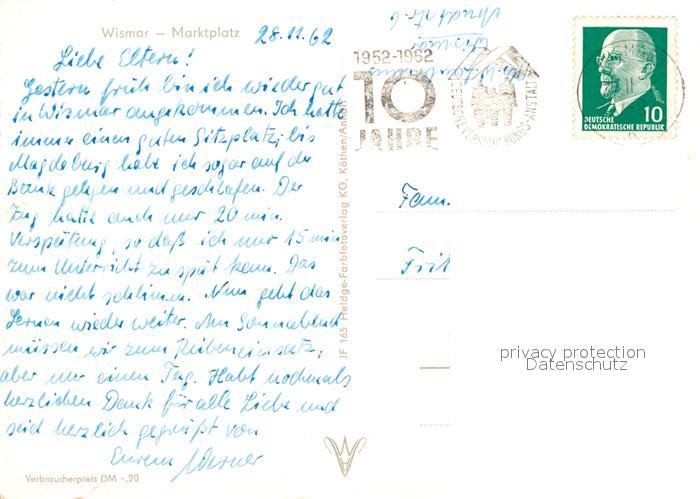 Wismar – Marktplatz
28.11.62
Liebe Eltern!
Gestern früh bin ich wieder gut
in Wismar angekommen. Ich hatte
immer einen guten Sitzplatz, bis
Magdeburg habe ich sogar auf der
Bank gelegen und geschlafen. Der
Zug hatte auch nur 20 min.
Verspätung, so daß ich nur 15 min
zum Unterricht zu spät kam. Das
war nicht schlimm. Nun geht das
Lernen wieder weiter. Am Sonnabend
müssen wir zum Rübeneinsatz,
aber nur einen Tag. Habt nochmals
herzlichen Dank für alle Liebe und
seid herzlich gegrüßt von
Eurem Werner
Verbraucherpreis DM -,20
JF 165 Heldge-Farbfotoverlag KG, Köthen/Anhalt
Wismar
1952-1962
10
JAHRE
DEUTSCHE VERSICHERUNGS-ANSTALT
10
DEUTSCHE
DEMOKRATISCHE REPUBLIK
Fam.
Frit
privacy protection
Datenschutz